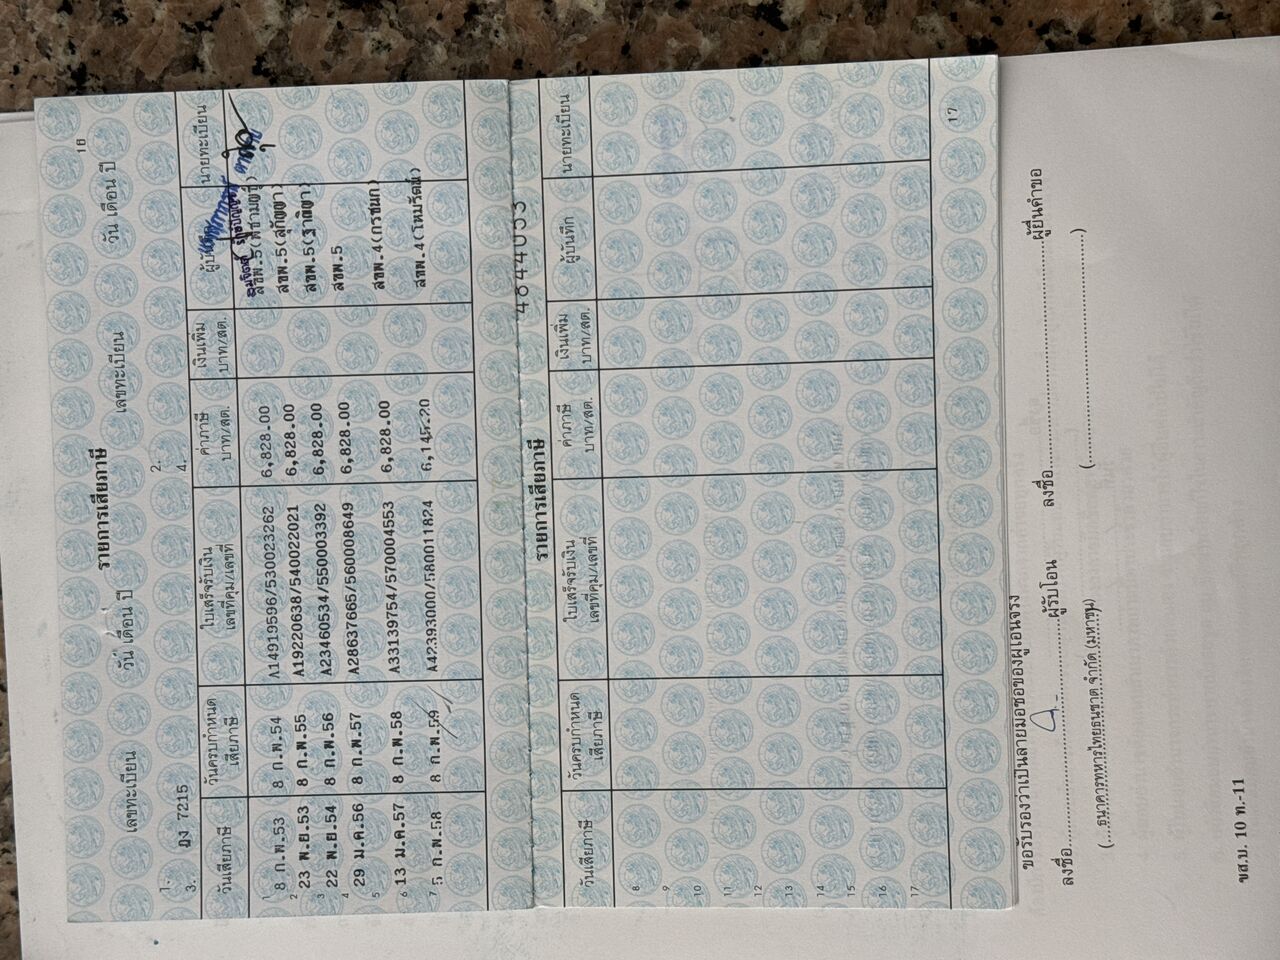 16
รายการเสียภาษี
เลขทะเบียน วัน เดือน ปี เลขทะเบียน วัน เดือน ปี
1. 2.
3. ฎง 7215 4.
วันเสียภาษี วันครบกำหนด เสียภาษี ใบเสร็จรับเงิน เลขที่คุม/เลขที่ ค่าภาษี บาท/สต. เงินเพิ่ม บาท/สต. นายทะเบียน
1 8 ก.พ.53 8 ก.พ.54 A14919596/530023262 6,828.00
2 23 พ.ย.53 8 ก.พ.55 A19220638/540022021 6,828.00 สขพ.5(สุกัญญา)
3 22 พ.ย.54 8 ก.พ.56 A23460534/550003392 6,828.00 สขพ.5(ฐาณิญา)
4 29 ม.ค.56 8 ก.พ.57 A28637665/560008649 6,828.00 สขพ.5
5
6 13 ม.ค.57 8 ก.พ.58 A33139754/570004553 6,828.00 สขพ.4(กรชนก)
7 5 ก.พ.58 8 ก.พ.59 A42393000/580011824 6,145.20
4644053
รายการเสียภาษี
วันเสียภาษี วันครบกำหนด เสียภาษี ใบเสร็จรับเงิน เลขที่คุม/เลขที่ ค่าภาษี บาท/สต. เงินเพิ่ม บาท/สต. ผู้บันทึก นายทะเบียน
8
9
10
11
12
13
14
15
16
17
17
ลงชื่อ ผู้รับโอน ลงชื่อ ผู้ยื่นคำขอ
(...ธนาคารทหารไทยธนชาต จำกัด (มหาชน) (...)
ขส.บ. 10 ท.-11